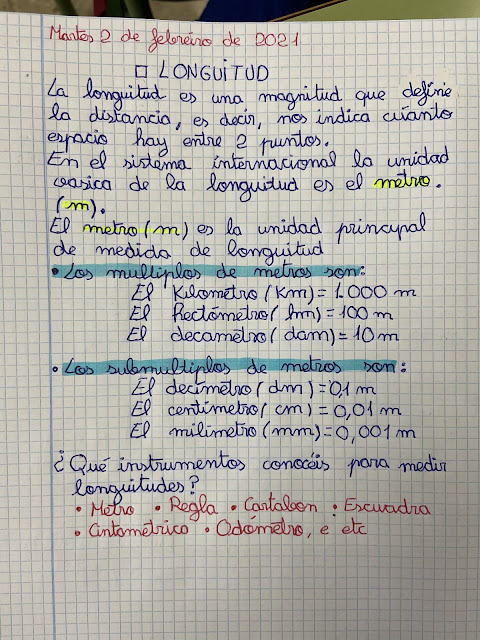 Martes 2 de febreiro de 2021
LONGUITUD
La longuitud es una magnitud que define
la distancia, es decir, nos indica cúanto
espacio hay entre 2 puntos.
En el sistema internacional la unidad
vasica de la longuitud es el metro.
(m).
El metro (m) es la unidad principal
de medida de longuitud
• Los multiplos de metros son:
El Kilometro (Km) = 1.000 m
El hectómetro (hm) = 100 m
El decametro (dam) = 10 m
• Los submultiplos de metros son:
El decímetro (dm) = 0,1 m
El centímetro (cm) = 0,01 m
El milímetro (mm) = 0,001 m
¿Qué instrumentos conocéis para medir
longuitudes?
• Metro • Regla • Cartabon • Escuadra
• Cintométrico • Odómetro, e etc